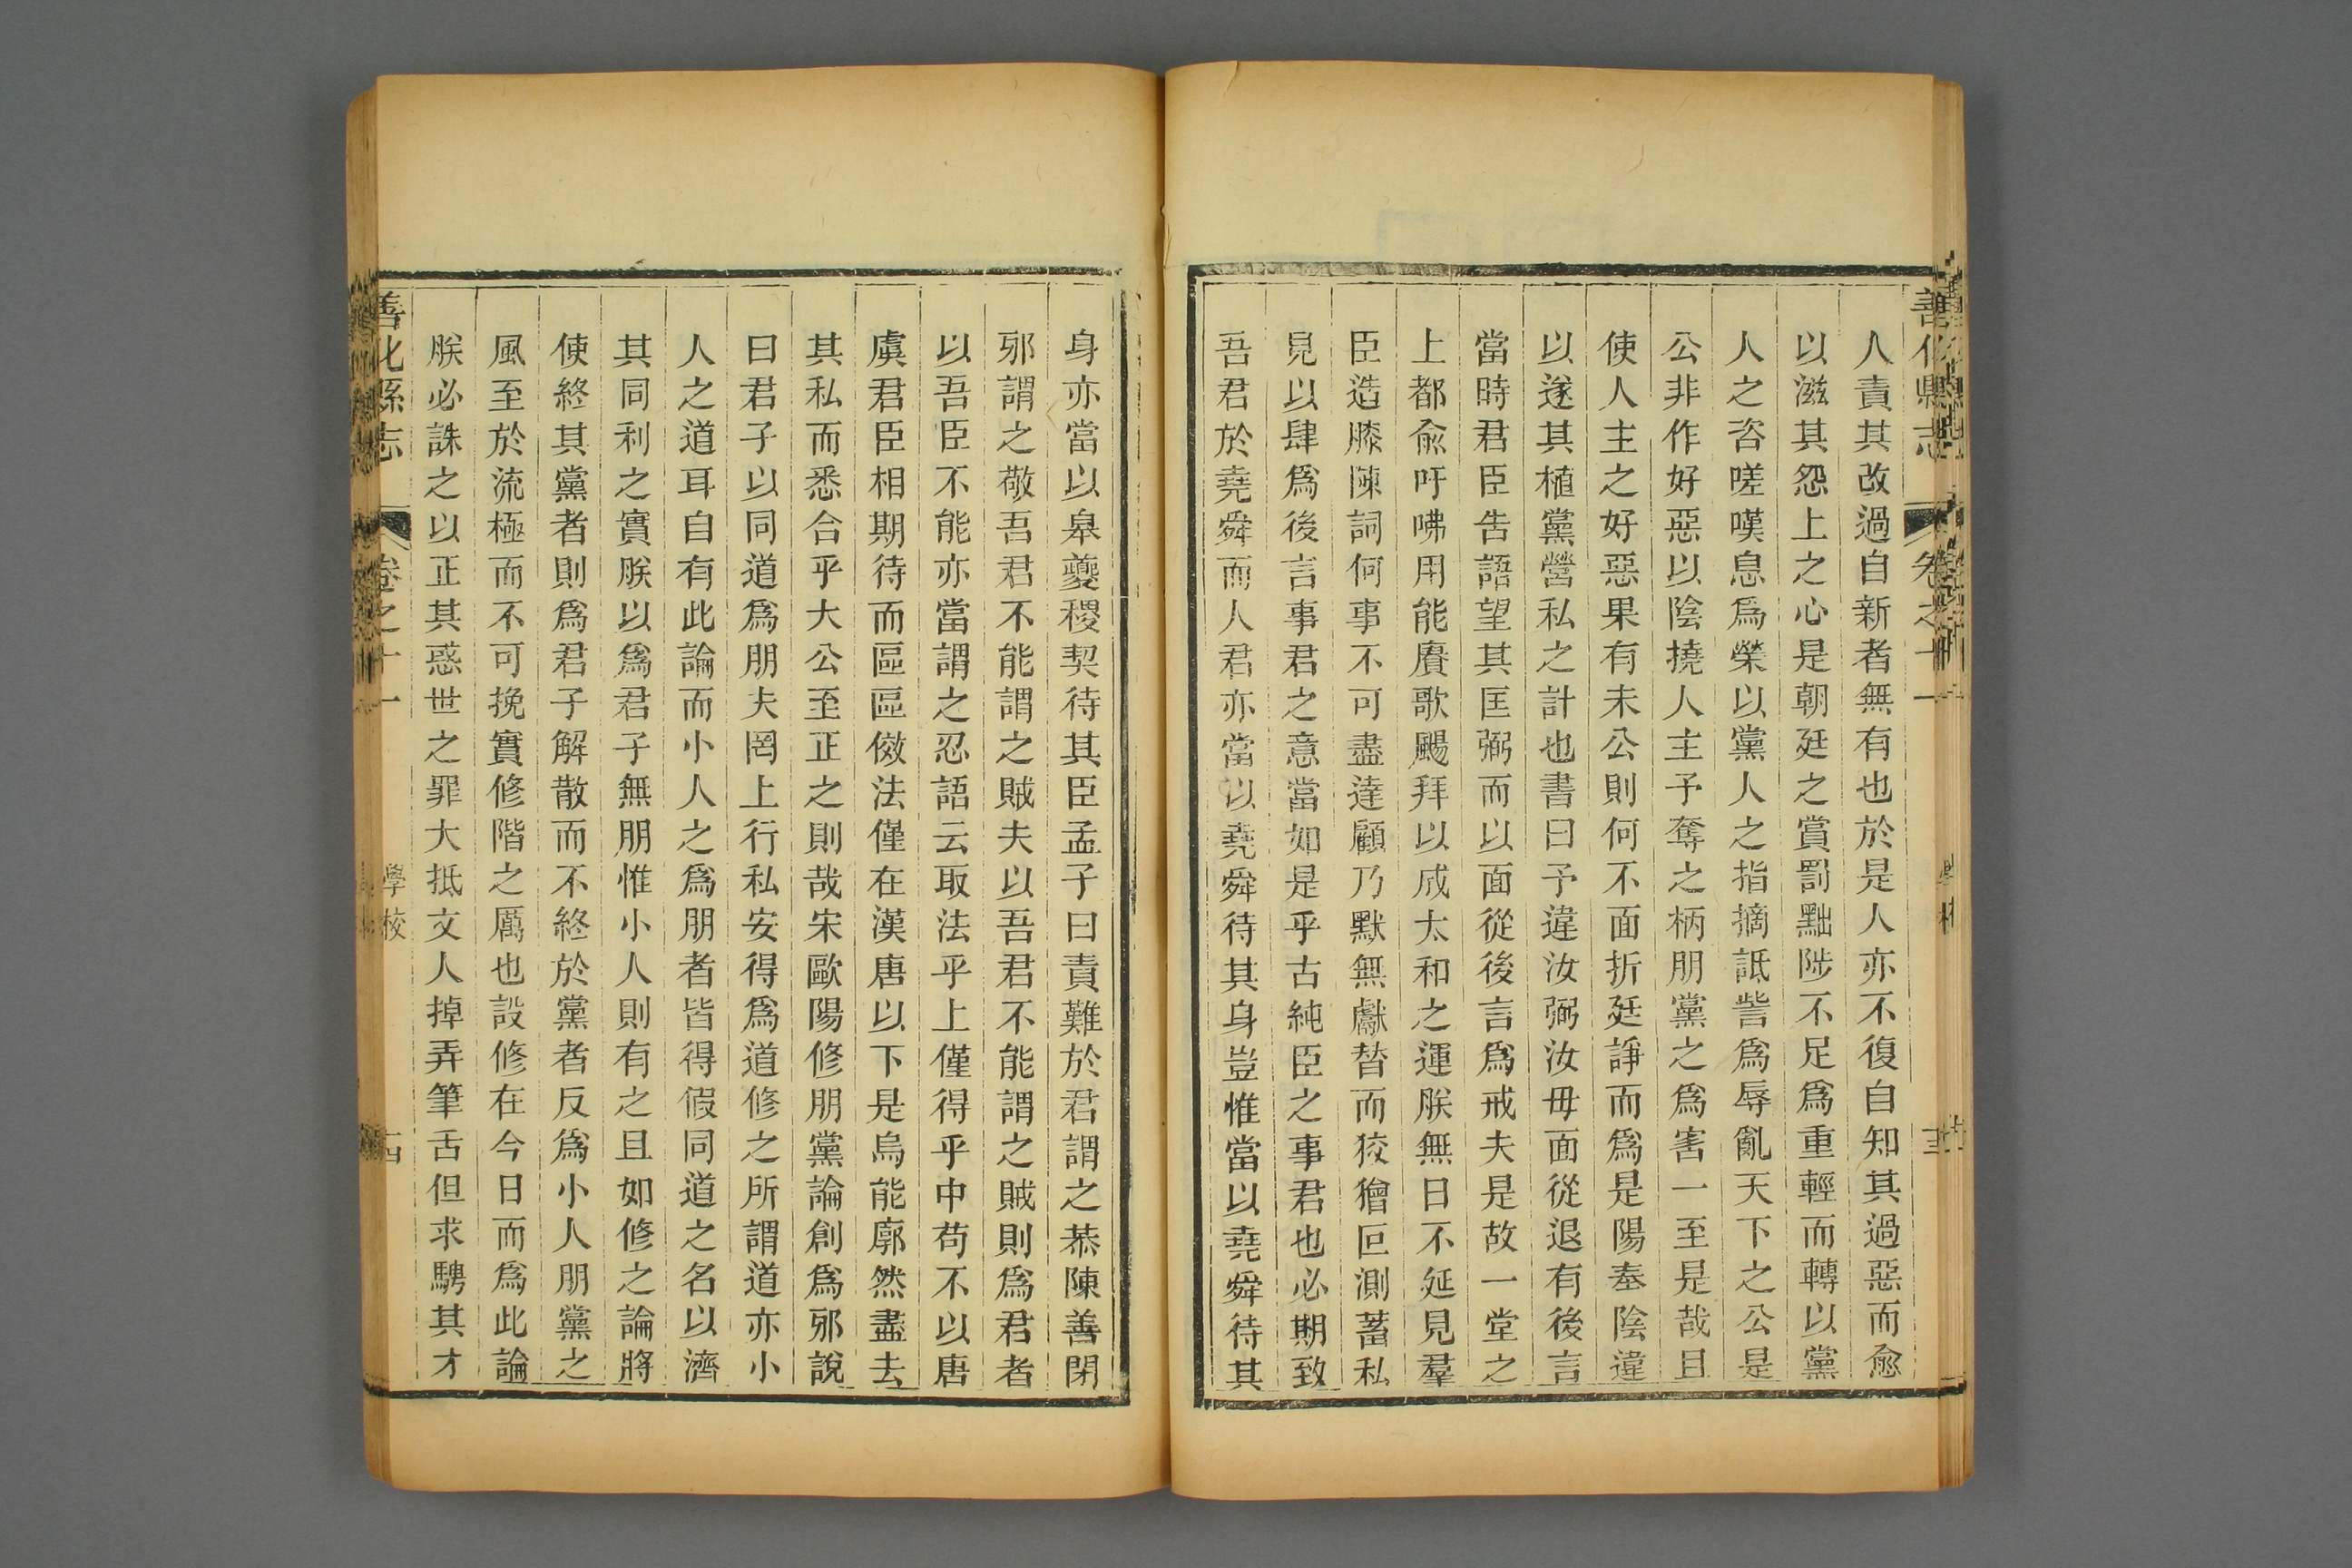 善化縣志 卷之十一
人責其改過自新者無有也於是人亦不復自知其過惡而愈
以滋其怨上之心是朝廷之賞罰黜陟不足爲重輕而轉以黨
人之咨嗟嘆息爲榮以黨人之指摘詆訾爲辱亂天下之公是
公非作好惡以陰撓人主予奪之柄朋黨之爲害一至是哉且
使人主之好惡果有未公則何不面折廷諍而爲是陽奉陰違
以遂其植黨營私之計也書曰予違汝弼汝毋面從退有後言
當時君臣告語望其匡弼而以面從後言爲戒夫是故一堂之
上都俞吁咈用能賡歌颺拜以成太和之運朕無日不延見羣
臣造膝陳詞何事不可盡達顧乃默無獻替而狡獪叵測蓄私
見以肆爲後言事君之意當如是乎古純臣之事君也必期致
吾君於堯舜而人君亦當以堯舜待其身豈惟當以堯舜待其
身亦當以皋夔稷契待其臣孟子曰責難於君謂之恭陳善閉
邪謂之敬吾君不能謂之賊夫以吾君不能謂之賊則爲君者
以吾臣不能亦當謂之忍語云取法乎上僅得乎中苟不以唐
虞君臣相期待而區區傚法僅在漢唐以下是烏能廓然盡去
其私而悉合乎大公至正之則哉宋歐陽修朋黨論創爲邪說
曰君子以同道爲朋夫罔上行私安得爲道修之所謂道亦小
人之道耳自有此論而小人之爲朋者皆得假同道之名以濟
其同利之實朕以爲君子無朋惟小人則有之且如修之論將
使終其黨者則爲君子解散而不終於黨者反爲小人朋黨之
風至於流極而不可挽實修階之厲也設修在今日而爲此論
朕必誅之以正其惑世之罪大抵文人掉弄筆舌但求騁其才
善化縣志 卷之十一 學校 十四